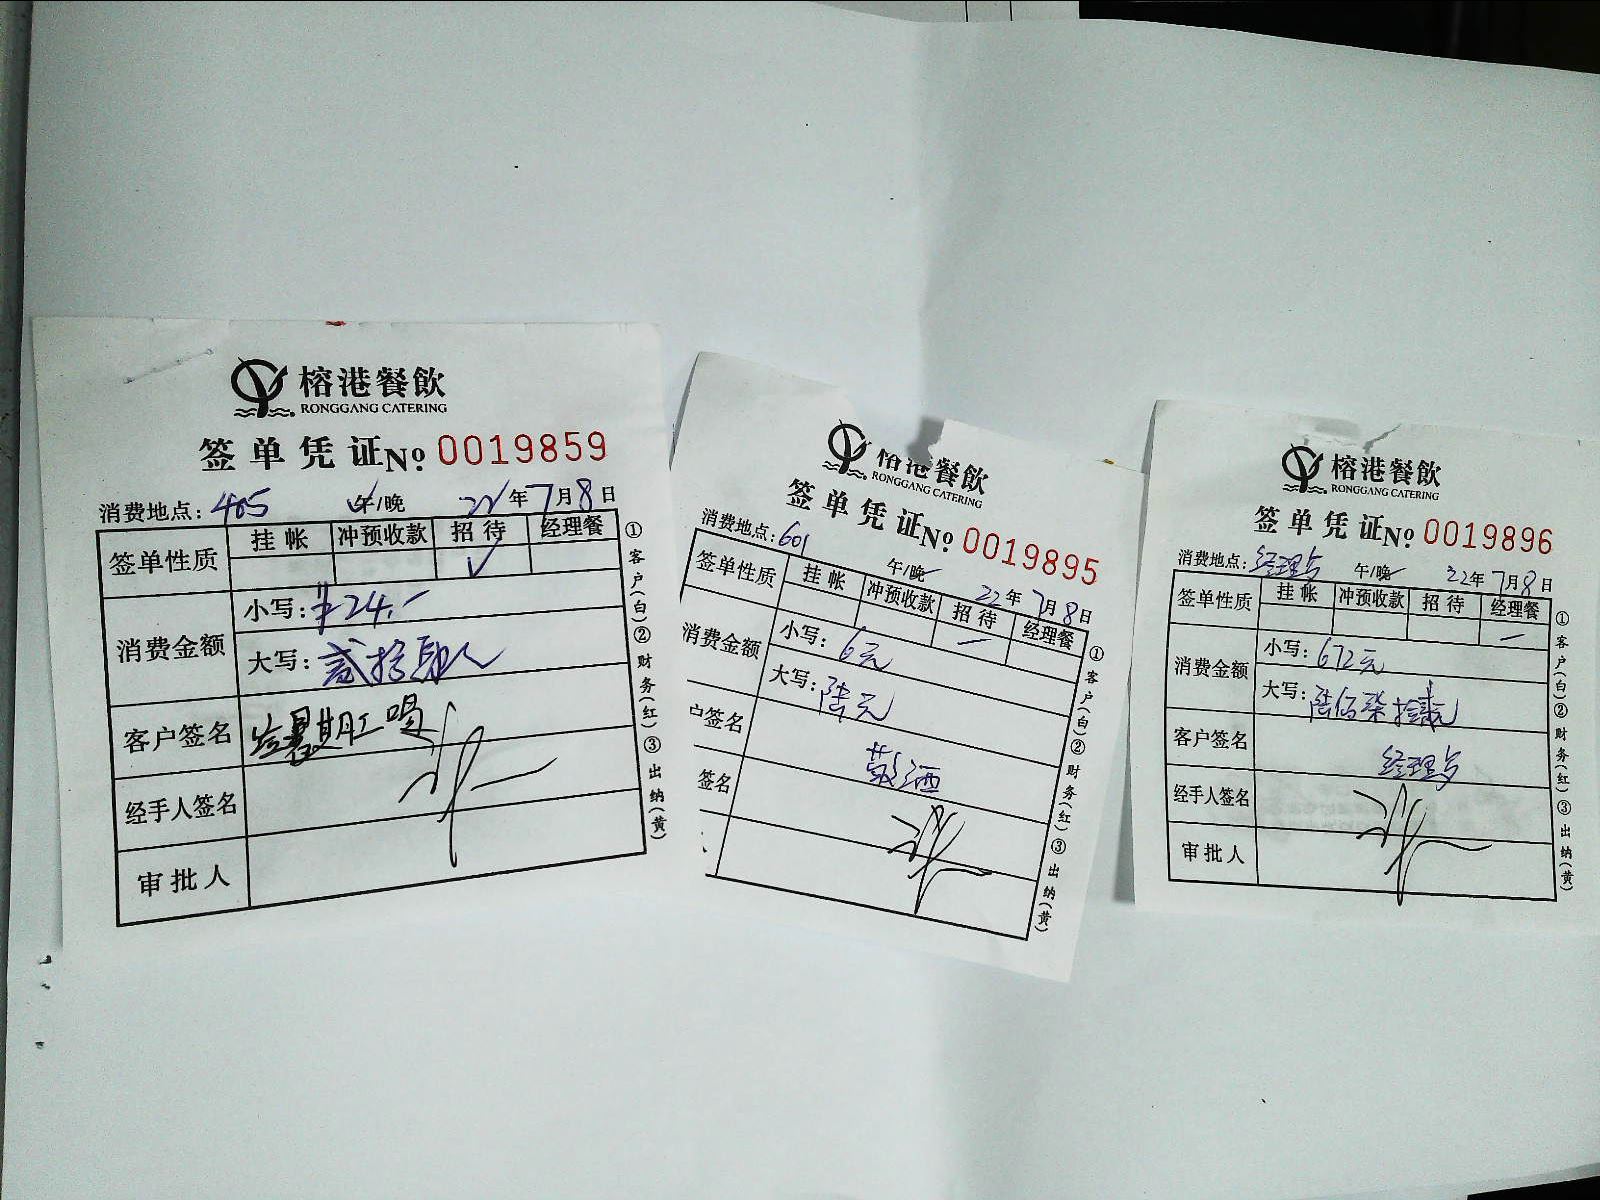 榕港餐飲
RONGGANG CATERING
签单凭证No. 0019859
消费地点: 405 午/晚 22年7月8日
签单性质 挂帐 冲预收款 招待 经理餐
✓
消费金额 小写: ¥24.-
大写: 贰拾肆元
客户签名
经手人签名
审批人
①客户(白)②财务(红)③出纳(黄)
榕港餐飲
RONGGANG CATERING
签单凭证No. 0019895
消费地点: 601 午/晚 22年7月8日
签单性质 挂帐 冲预收款 招待 经理餐
消费金额 小写: 6元
大写: 陆元
户签名 敬酒
签名
①客户(白)②财务(红)③出纳(黄)
榕港餐飲
RONGGANG CATERING
签单凭证No. 0019896
消费地点: 经理 午/晚 22年7月8日
签单性质 挂帐 冲预收款 招待 经理餐
消费金额 小写: 672元
大写: 陆佰柒拾贰元
客户签名 经理
经手人签名
审批人
①客户(白)②财务(红)③出纳(黄)